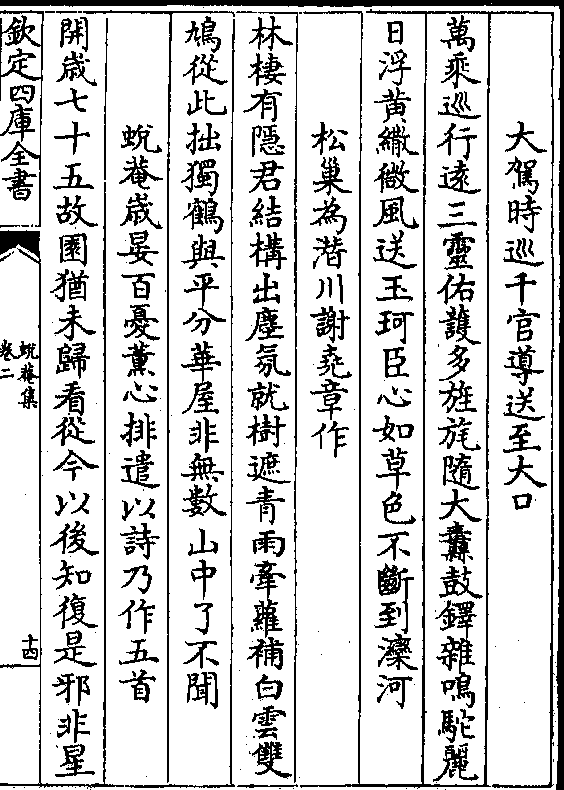 大駕時巡千官導送至大口
萬乘巡行逺三靈佑䕶多旌旄隨大纛鼓鐸雜鳴駝麗
日浮黄繖微風送玉珂臣心如草色不斷到灤河
松巢為潛川謝堯章作
林棲有隱君結構出塵氛就樹遮青雨牽蘿補白雲雙
鳩從此拙獨鶴與平分華屋非無數山中了不聞
蛻菴歳晏百憂薰心排遣以詩乃作五首
開歳七十五故園猶未歸看從今以後知復是邪非星
欽定四庫全書
蛻菴集
卷二
十四